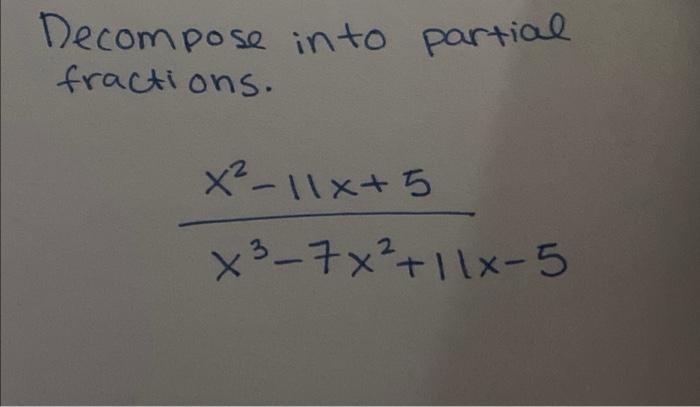 Decompose into partial
fractions.
x²-11x+5
x³-7x²+11x-5